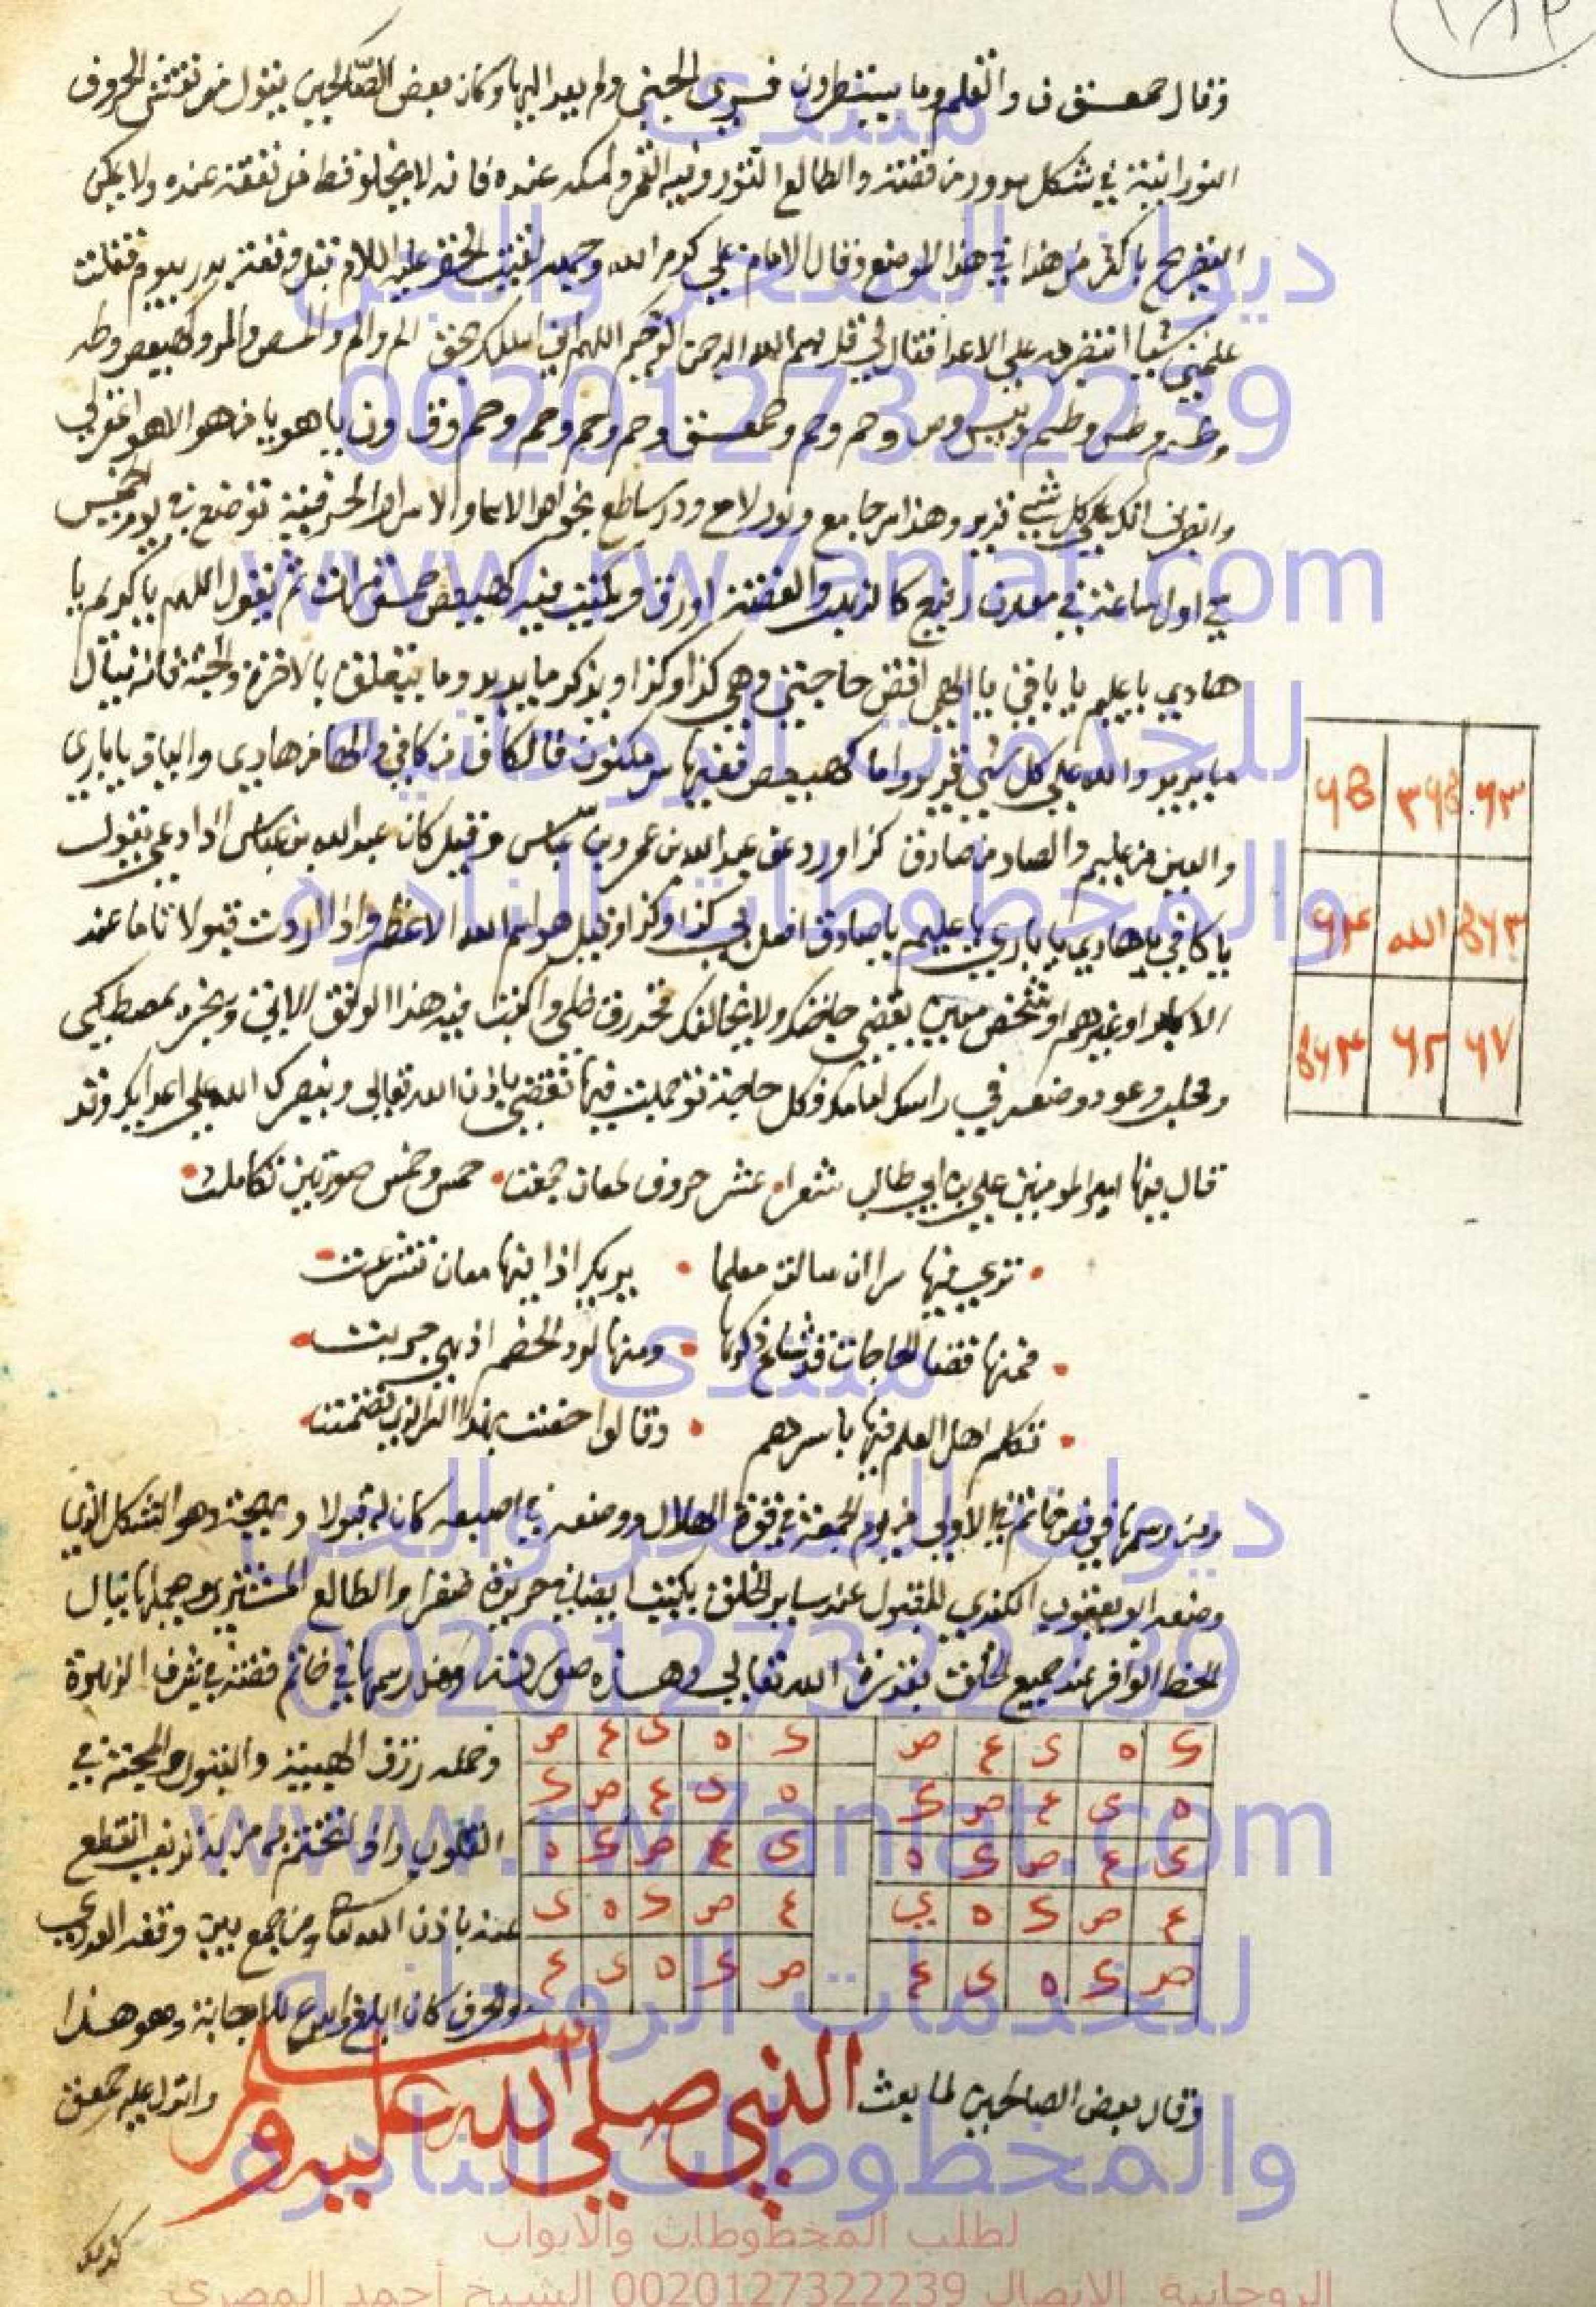 ١٨٣
وقال حمعسق ن والقلم وما يسطرون فبرى الجني ولم يعد اليها وكان بعض الصالحين يقول من نقش الحروف
النورانية في شكل من فضة والطالع الثور وفيه القمر وامسكه عنده فانه لا يخلو قط من نفقة عنده ولا يمكن
التصريح باكثر من هذا في هذا الموضع وقال الامام علي كرم الله وجهه لقيت الخضر عليه السلام قبل وقعة بدر بيوم فقلت
علمني شيا انتصر به على الاعدا فقال لي قل بسم الله الرحمن الرحيم اللهم اني اسالك بحق الم والم والمص والمر وكهيعص وطه
وطسم وطس وطسم ويس وص وحم وحم وحمعسق وحم وحم وحم وحم وق ون يا هو يا من هو الا هو اغفر لي
وانصرني انك على كل شي قدير وهذا سر جامع ونور لامع ودر ساطع بخواص الاسما والاسرار الحرفية توضع في يوم الخميس
في اول ساعة في معدن رفيع كالذهب والفضة او رق ويكتب فيه كهيعص خمس مرات ثم يقول اللهم يا كريم يا
هادي يا عليم يا باقي يا الهي اقض حاجتي وهي كذا وكذا ويذكر ما يريد وما يتعلق بالاخرة والجنة فانه ينال
ما يريد والله على كل شي قدير واما كهيعص ففيها سر مكنون فالكاف من كافي والها من هادي واليا من يا باري
والعين من عليم والصاد من صادق كذا ورد عن عبد الله بن عمر وبن عباس وقيل كان عبد الله بن عباس اذا دعى يقول
يا كافي يا هادي يا باري يا عليم يا صادق افعل لي كذا وكذا وقيل هو اسم الله الاعظم واذا اردت قبولا تاما عند
الاكابر او غيرهم او شخص معين يقضي حاجتك ولا يخالفك فخذ رق ظبي واكتب فيه هذا الوفق الاتي وبخره بمصطكي
ومحلب وعود وضعه في راسك امامك فكل حاجة توجهت فيها تقضى باذن الله تعالى وينصرك الله على اعدايك وقد
قال فيها امير المومنين علي بن ابي طالب شعرا عشر حروف لمعان جمعت خمس وخمس صورتين تكاملت
ترى فيها سرا ان سالت معلما يريك اذا فيها معان تشرعت
فمنها قضا الحاجات قد شاع ذكرها ومنها لرد الخصم اذ هي جربت
تكلم اهل العلم فيها باسرهم وقالوا حقت بهذا الذي تضمنت
ومن رسمها في فص خاتم في الاولى من يوم الجمعة في قوة الهلال ووضعه في اصبعه كان له قبولا ومحبة وهو الشكل الذي
وضعه ابو يعقوب الكندي للقبول عند ساير الخلق يكتب ايضا في حريرة صفرا والطالع المشتري وحملها ينال
الحظ الوافر عند جميع الخلق بقدرة الله تعالى وهذه صورته ومن رسمها في خاتم فضة في شرف الزهرة
وحمله رزق الهيبة والقبول والمحبة في
القلوب واذا تختم به من به نزيف انقطع
عنه باذن الله تعالى ومن جمع بين وفقه العددي
والحرفي كان ابلغ واسرع للاجابة وهو هذا
ك ه ي ع ص ك ه ي ع ص
ه ي ع ص ك ه ي ع ص ك
ي ع ص ك ه ي ع ص ك ه
ع ص ك ه ي ع ص ك ه ي
ص ك ه ي ع ص ك ه ي ع
الله
٦٧ ٦٢
وقال بعض الصالحين لما بعث النبي صلى الله عليه وسلم وانزل عليه حمعسق
منتدى
ديوان السحر والجن
0020127322239
www.rw7aniat.com
للخدمات الروحانيه
والمخطوطات النادره
منتدى
ديوان السحر والجن
0020127322239
www.rw7aniat.com
للخدمات الروحانيه
والمخطوطات النادره
لطلب المخطوطات والابواب
الروحانية الاتصال 0020127322239 الشيخ أحمد المصرى